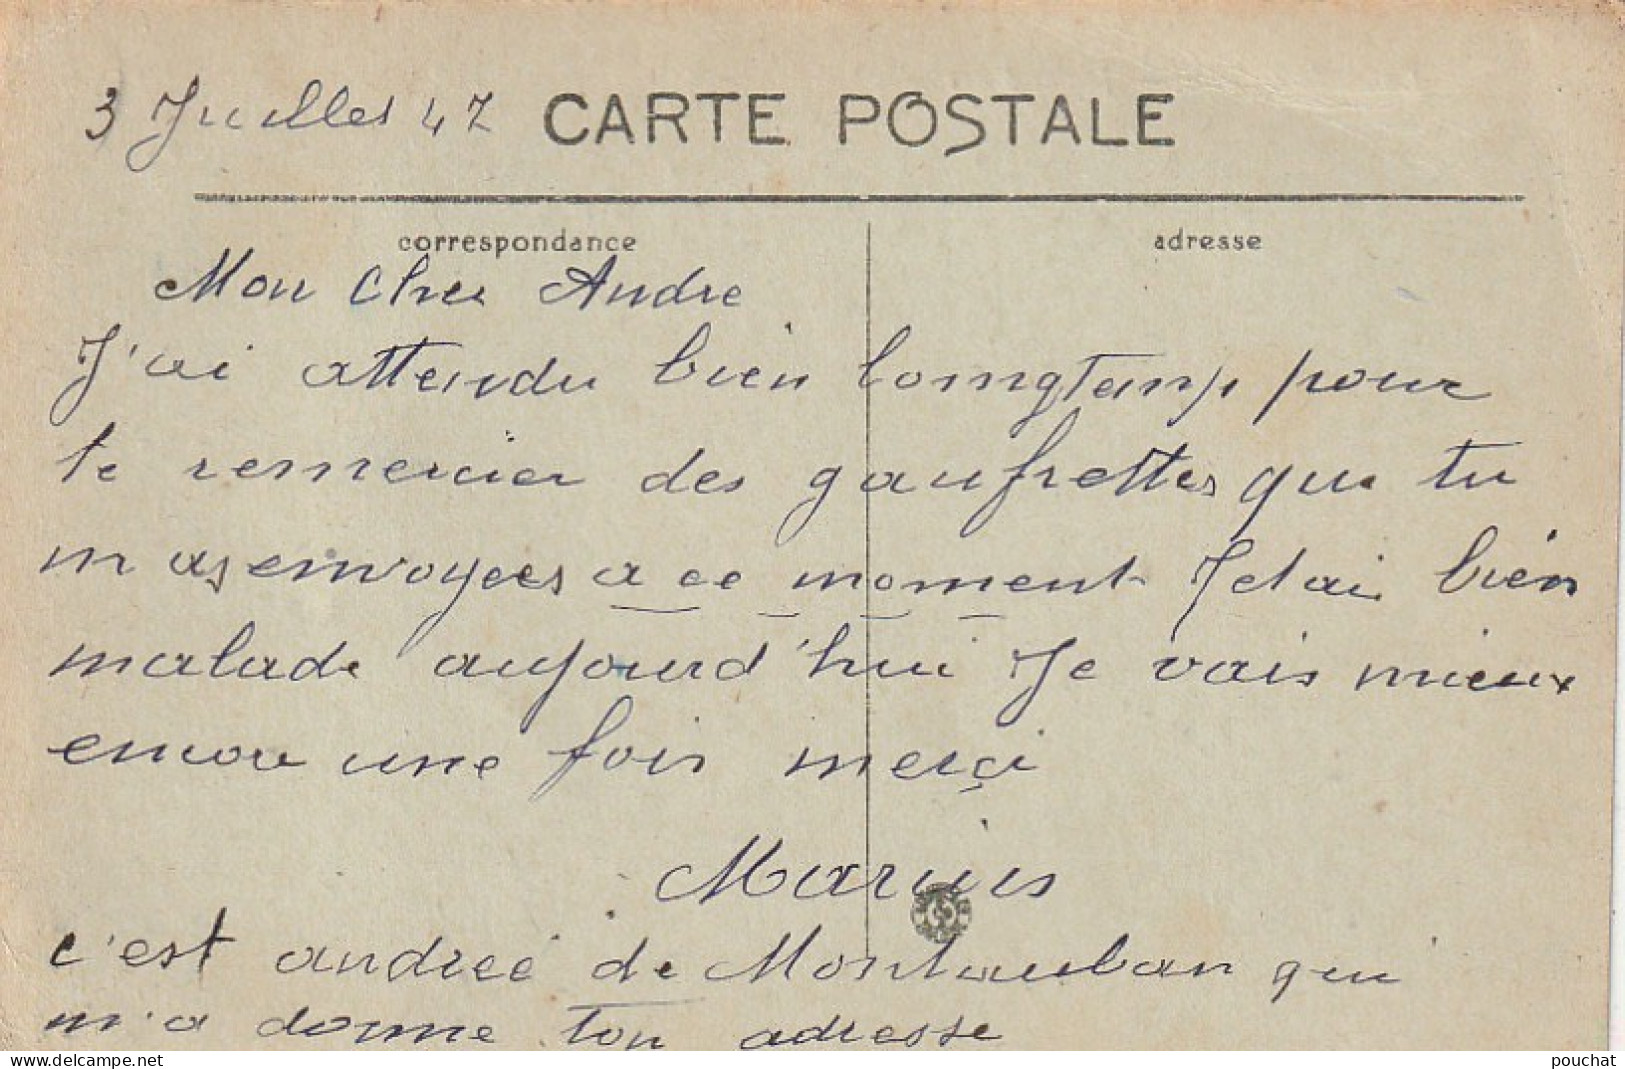 3 Juilles 47 CARTE POSTALE
correspondance adresse
Mon Cher Andre
J'ai attendu bien lomgtemps pour
te remercier des gaufrettes que tu
m as envoyees a ce moment J etai bien
malade aujourd'hui Je vais mieux
encore une fois merçi
Marius
c'est andreé de Montauban qui
m'a donne ton adresse
www.delcampe.net
pouchat